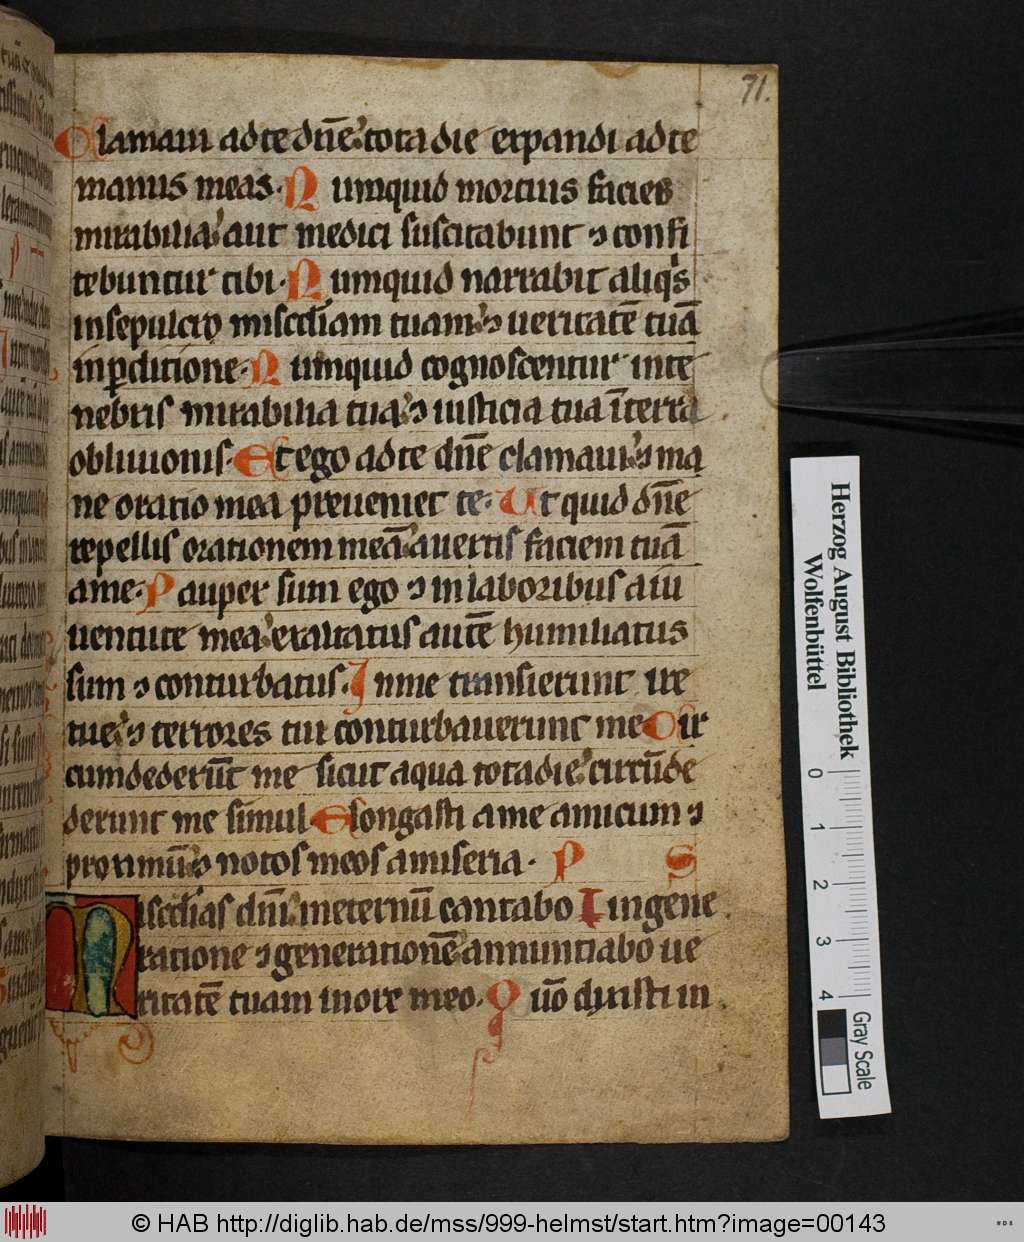 71.
Clamaui ad te dnē tota die expandi ad te
manus meas. Numquid mortuis facies
mirabilia aut medici suscitabunt ⁊ confi
tebuntur tibi. Numquid narrabit aliqˢ
in sepulcro misc̄diam tuam ⁊ ueritatē tuā
in ꝑditione. Numquid cognoscentur in te
nebris mirabilia tua ⁊ iusticia tua ī terra
obliuionis. Et ego ad te dnē clamaui ⁊ ma
ne oratio mea preueniet te. Ut quid dnē
repellis orationem meā auertis faciem tuā
a me. Pauper sum ego ⁊ in laboribus a iu
uentute mea exaltatus autē humiliatus
sum ⁊ conturbatus. In me transierunt ire
tue ⁊ terrores tui conturbauerunt me Cir
cumdederūt me sicut aqua tota die circūde
derunt me simul Elongasti a me amicum ⁊
proximū ⁊ notos meos a miseria. P S
Misc̄dias dnī in eternū cantabo In gene
ratione ⁊ generationē annuntiabo ue
ritatē tuam in ore meo. Quō dixisti in
Herzog August Bibliothek
Wolfenbüttel
0 1 2 3 4
Gray Scale
© HAB http://diglib.hab.de/mss/999-helmst/start.htm?image=00143